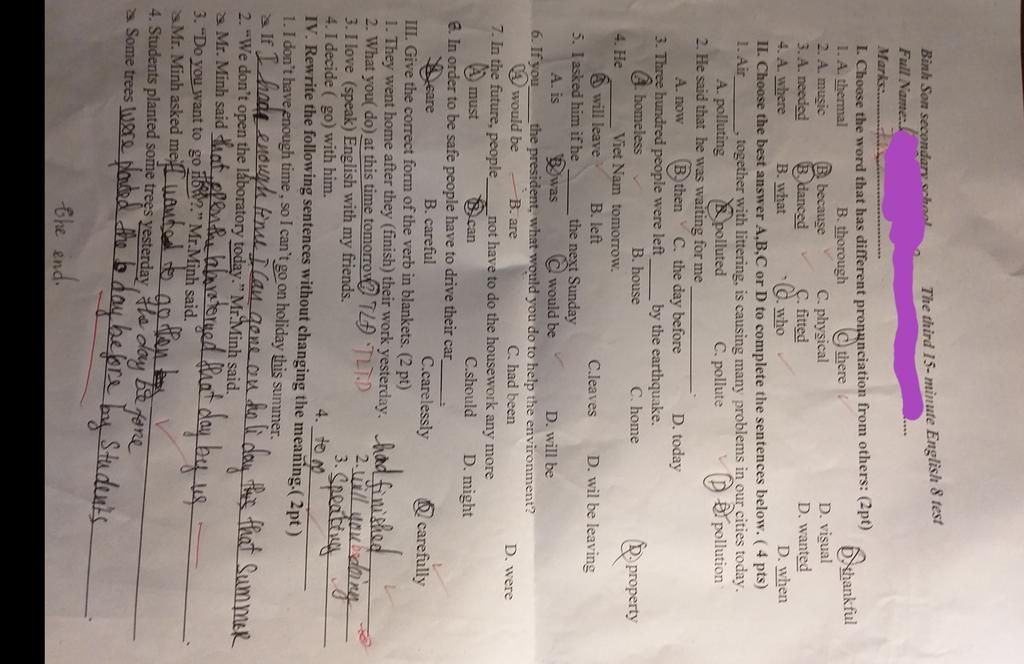 Binh Son secondary school The third 15- minute English 8 test
Full Name:
Marks:
I. Choose the word that has different pronunciation from others: (2pt)
1. A. thermal B. thorough C. there D. thankful
2. A. music B. because C. physical D. visual
3. A. needed B. danced C. fitted D. wanted
4. A. where B. what C. who D. when
II. Choose the best answer A,B,C or D to complete the sentences below. ( 4 pts)
1. Air______, together with littering, is causing many problems in our cities today.
A. polluting B. polluted C. pollute D. pollution
2. He said that he was waiting for me ____________.
A. now B. then C. the day before D. today
3. Three hundred people were left _____ by the earthquake.
A. homeless B. house C. home D. property
4. He ______ Viet Nam tomorrow.
A. will leave B. left C.leaves D. wil be leaving
5. I asked him if he______ the next Sunday
A. is B. was C. would be D. will be
6. If you ____ the president, what would you do to help the environment?
A. would be B. are C. had been D. were
7. In the future, people_____not have to do the housework any more
A. must B. can C.should D. might
8. In order to be safe people have to drive their car______.
A. care B. careful C.carelessly D. carefully
III. Give the correct form of the verb in blankets. (2 pt)
1. They went home after they (finish) their work yesterday. had finished
2. What you( do) at this time tomorrow? TLTD 2. will you be doing
3. I love (speak) English with my friends. 3. speaking
4. I decide ( go) with him. 4. to go
IV. Rewrite the following sentences without changing the meaning.( 2pt )
1. I don't have enough time, so I can't go on holiday this summer.
If I had enough time I can gone on holiday that summer
2. "We don't open the laboratory today." Mr.Minh said.
Mr. Minh said that that day by us
3. "Do you want to go now?." Mr.Minh said.
Mr. Minh asked me if I wanted to go then
4. Students planted some trees yesterday. the day before
Some trees were the day before by students
the end.